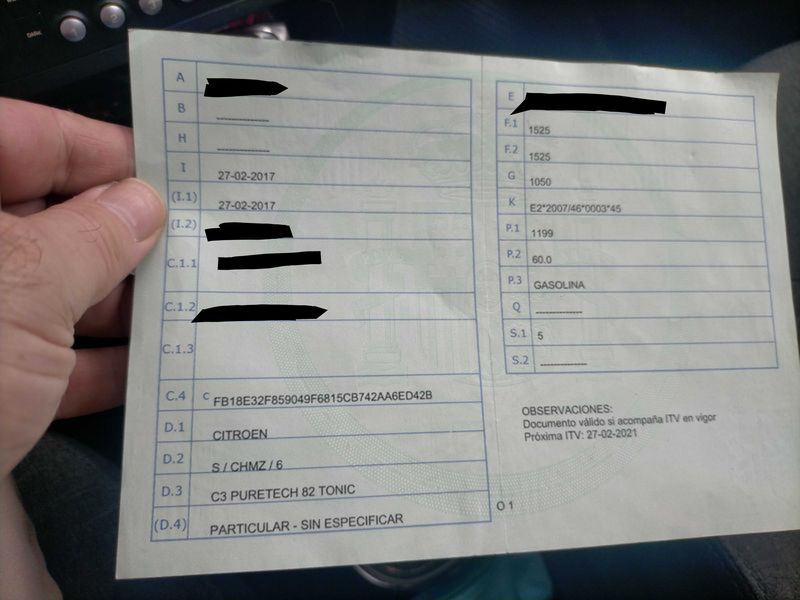 DARK
A
B ------------
H ------------
I 27-02-2017
(I.1) 27-02-2017
(I.2)
C.1.1
C.1.2
C.1.3
C.4 C FB18E32F859049F6815CB742AA6ED42B
D.1 CITROEN
D.2 S / CHMZ / 6
D.3 C3 PURETECH 82 TONIC
(D.4) PARTICULAR - SIN ESPECIFICAR
E
F.1 1525
F.2 1525
G 1050
K E2*2007/46*0003*45
P.1 1199
P.2 60.0
P.3 GASOLINA
Q ------------
S.1 5
S.2 ------------
OBSERVACIONES:
Documento válido si acompaña ITV en vigor
Próxima ITV: 27-02-2021
O 1